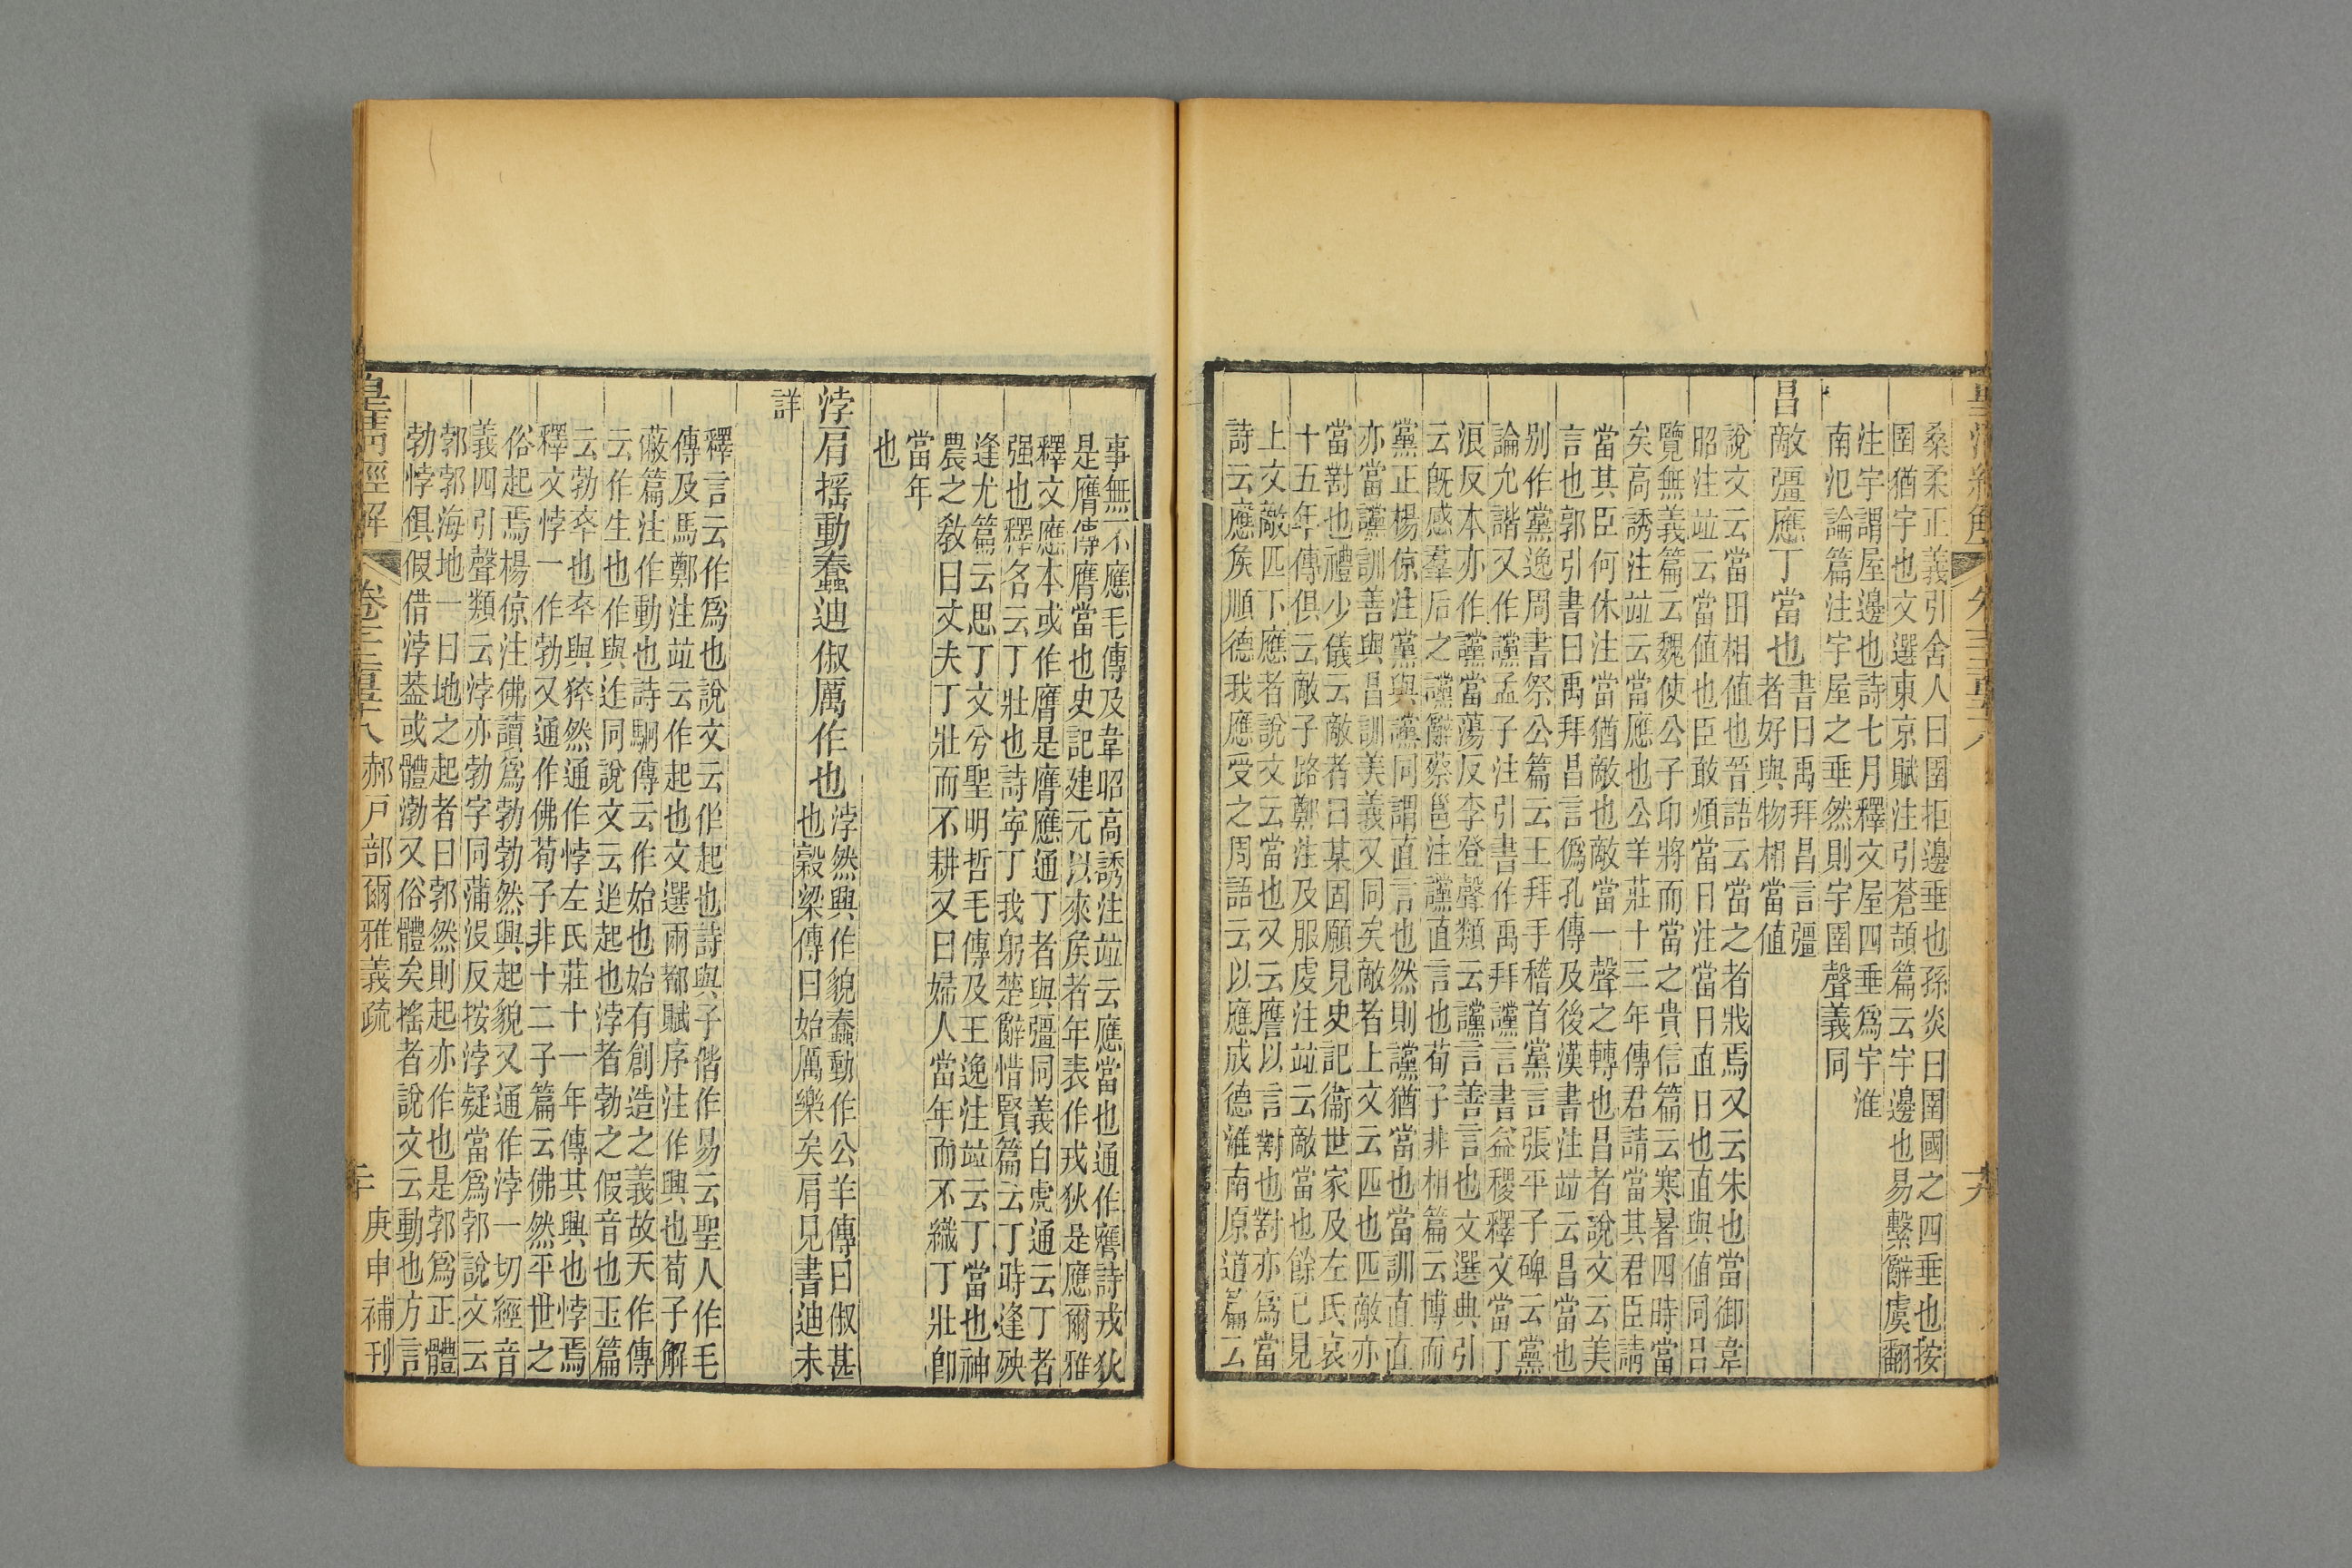 桑柔正義引舍人曰圉拒邊垂也孫炎曰圉國之四垂也按
圉猶宇也文選東京賦注引蒼頡篇云宇邊也易繫辭虞翻
注宇謂屋邊也詩七月釋文屋四垂爲宇淮
南氾論篇注宇屋之垂然則宇圉聲義同
昌敵彊應丁當也
書曰禹拜昌言彊
者好與物相當值
說文云當田相值也晉語云當之者戕焉又云朱也當御韋
昭注竝云當值也臣敢煩當日注當日直日也直與值同呂
覽無義篇云魏使公子卬將而當之貴信篇云寒暑四時當
矣高誘注竝云當應也公羊莊十三年傳君請當其君臣請
當其臣何休注當猶敵也敵當一聲之轉也昌者說文云美
言也郭引書曰禹拜昌言僞孔傳及後漢書注竝云昌當也
別作黨逸周書祭公篇云王拜手稽首黨言張平子碑云黨
論允諧又作讜孟子注引書作禹拜讜言書益稷釋文當丁
浪反本亦作讜當蕩反李登聲類云讜言善言也文選典引
云旣感羣后之讜辭蔡邕注讜直言也荀子非相篇云博而
黨正楊倞注黨與讜同謂直言也然則讜猶當也當訓直直
亦當讜訓善與昌訓美義又同矣敵者上文云匹也匹敵亦
當對也禮少儀云敵者曰某固願見史記衞世家及左氏哀
十五年傳俱云敵子路鄭注及服虔注竝云敵當也餘已見
上文敵匹下應者說文云當也又云譍以言對也對亦爲當
詩云應侯順德我應受之周語云以應成德淮南原道篇云
事無不應毛傳及韋昭高誘注竝云應當也通作譍詩戎狄
是膺傳膺當也史記建元以來矦者年表作戎狄是應爾雅
釋文應本或作膺是膺應通丁者與彊同義白虎通云丁者
强也釋名云丁壯也詩寕丁我躬楚辭惜賢篇云丁時逢殃
逢尤篇云思丁文兮聖明哲毛傳及王逸注竝云丁當也神
農之敎曰丈夫丁壯而不耕又曰婦人當年而不織丁壯卽
當年
也
浡肩搖動蠢迪俶厲作也
浡然興作貌蠢動作公羊傳曰俶甚
也穀梁傳曰始厲樂矣肩見書迪未
詳
釋言云作爲也說文云作起也詩與子偕作易云聖人作毛
傳及馬鄭注竝云作起也文選兩都賦序注作興也荀子解
蔽篇注作動也詩駉傳云作始也始有創造之義故天作傳
云作生也作與迮同說文云迮起也浡者勃之假音也玉篇
云勃㚕也㚕與猝然通作悖左氏莊十一年傳其興也悖焉
釋文悖一作勃又通作佛荀子非十二子篇云佛然平世之
俗起焉楊倞注佛讀爲勃勃然興起貌又通作浡一切經音
義四引聲類云浡亦勃字同蒲沒反按浡疑當爲郣說文云
郣郣海地一曰地之起者曰郣然則起亦作也是郣爲正體
勃悖俱假借浡葢或體渤又俗體矣搖者說文云動也方言
皇淸經解
卷千二百五十八
郝戶部爾雅義疏
二十
庚申補刊